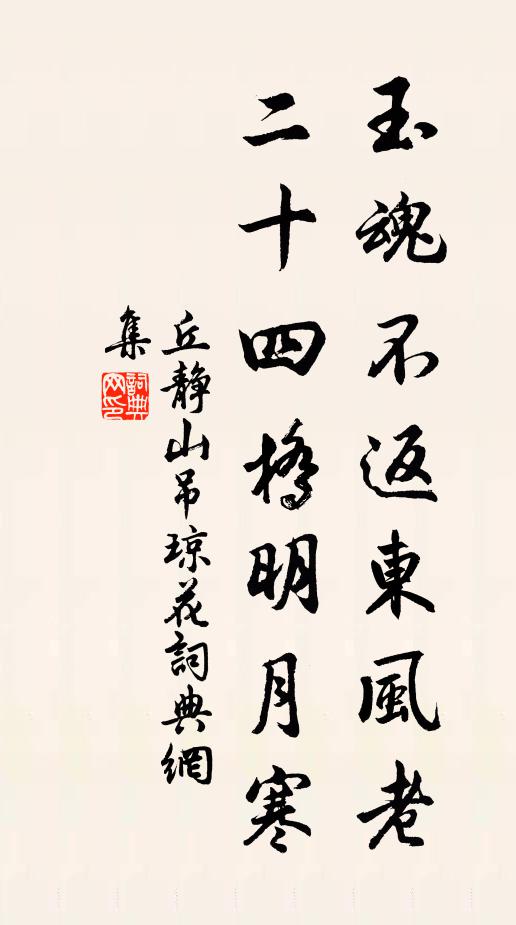 玉魂不返東風老
二十四橋明月寒
丘靜山吊琼花詞典網
集
詞典网印